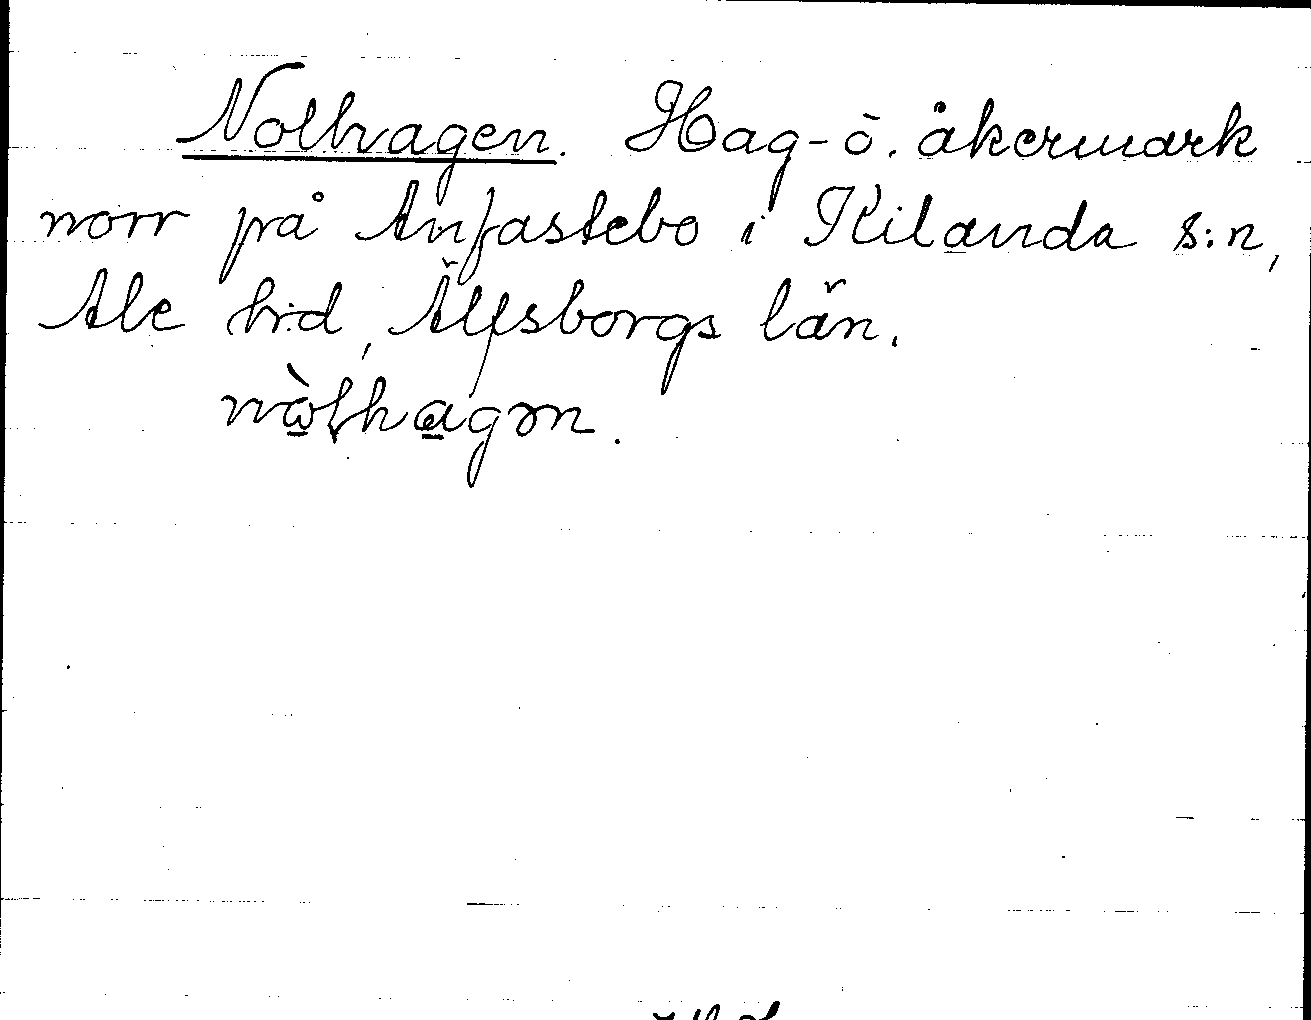 Nolhagen. Hag- o. åkermark
norr på Anfastebo i Kilanda s:n,
Ale hd, Älfsborgs län.